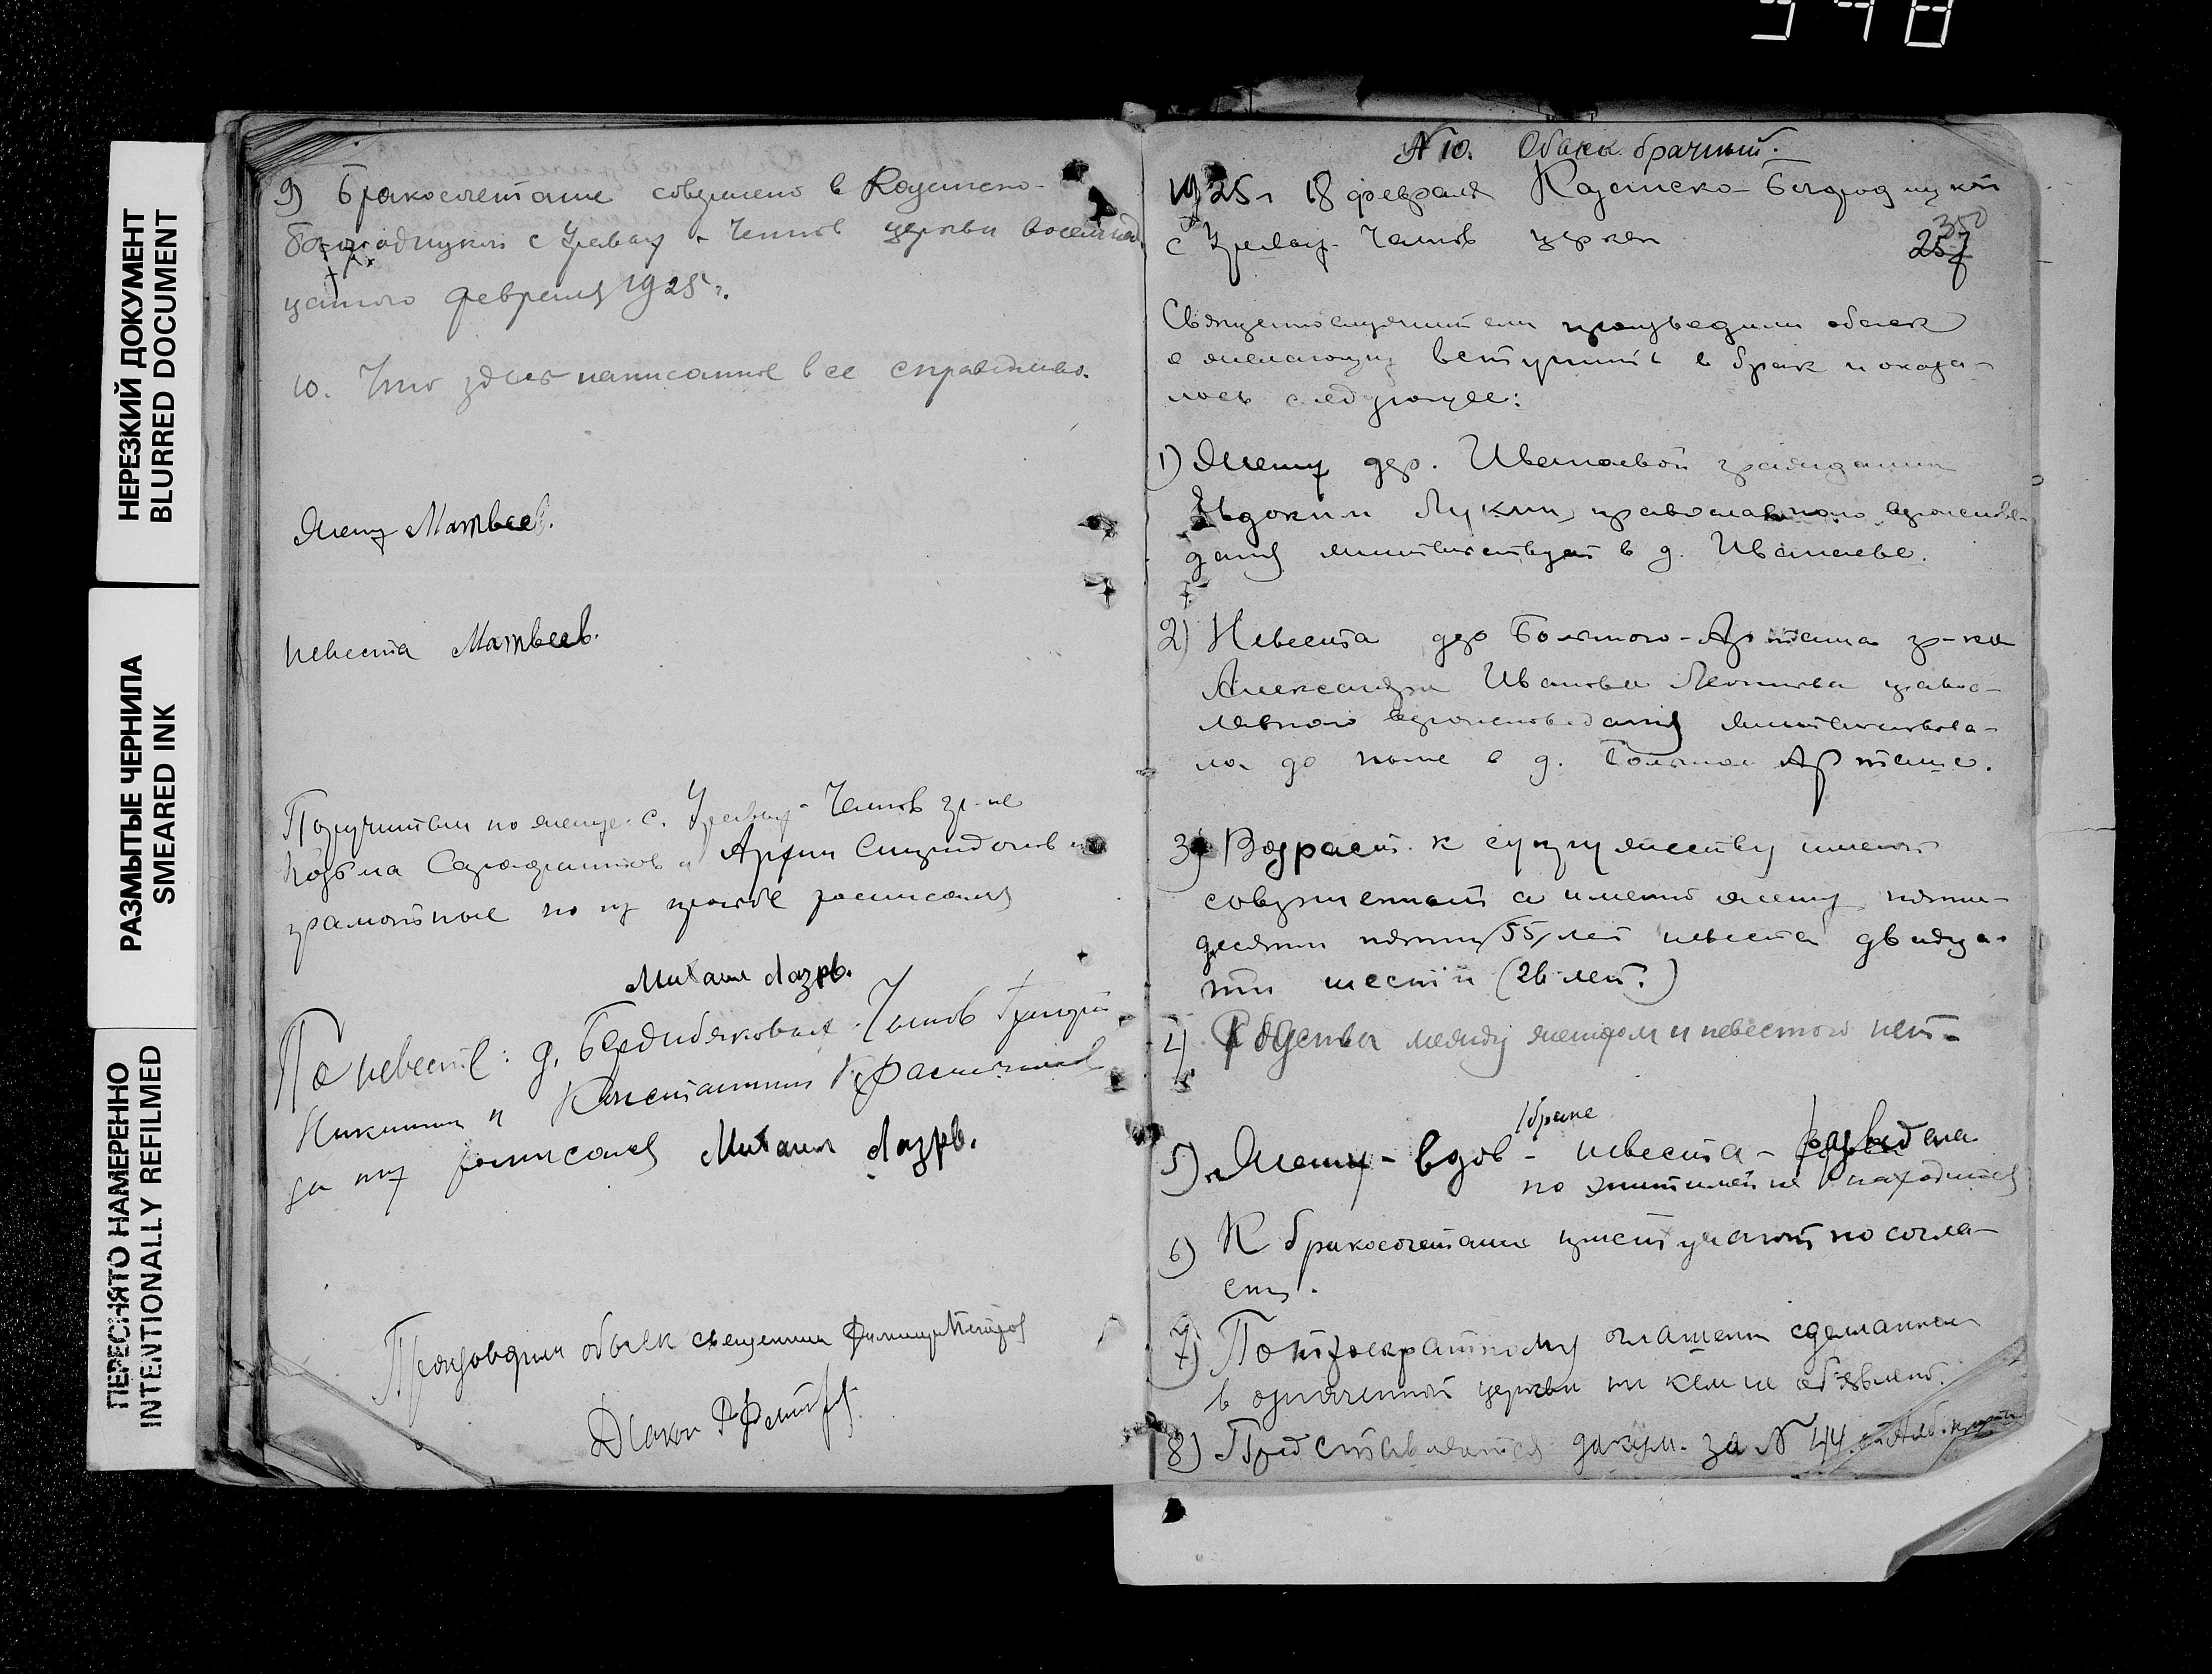 348
НЕРЕЗКИЙ ДОКУМЕНТ
BLURRED DOCUMENT
РАЗМЫТЫЕ ЧЕРНИЛА
SMEARED INK
ПЕРЕСНЯТО НАМЕРЕННО
INTENTIONALLY REFILMED
9) Бракосочетание совершено в Казанско-
Богородицкой с Уревау - Чепов церкви восемнад
цатого февраля 1925 г.
10. Что здесь написанное все справедливо.
Жених Матвеев.
Невеста Матвеев.
Поручители по женихе: с. Чепов гр-не
Козьма и Спиридонов и
грамотные по их просьбе росписался
Михаил Лазрв.
По невесте: д. Григорий
Никитин и Константин
за них росписался Михаил Лазрв.
Производили обыск священник Филипп Петров
Диакон
N 10. Обыск брачный.
1925 г 18 февраля Казанско-Богородицкой
с церкви
350
257
Священнослужители производили обыск
о желающих вступить в брак и оказа-
лось следующее:
1) Жених дер. Иванаевой гражданин
Евдоким Лукин, православного вероиспове-
дания жительствует в д. Иванаеве.
2) Невеста дер Большого-Арташа гр-ка
Александра Иванова Леонтьева право-
славного вероисповедания жительствова-
ла до ныне в д. Большом Арташе.
3) Возраст к супружеству имеют
совершенный а именно жених пяти-
десяти пяти /55/ лет невеста двадца-
ти шести (26 лет.)
4) Родства между женихом и невестою нет.
5) Жених - вдов - невеста - разведена
I браке
но эпитимией не находится
6) К бракосочетанию приступают по согла-
сию.
7) По троекратному оглашению сделанном
в означенной церкви ни кем не объявлено.
8) Представляются докум. за N 44